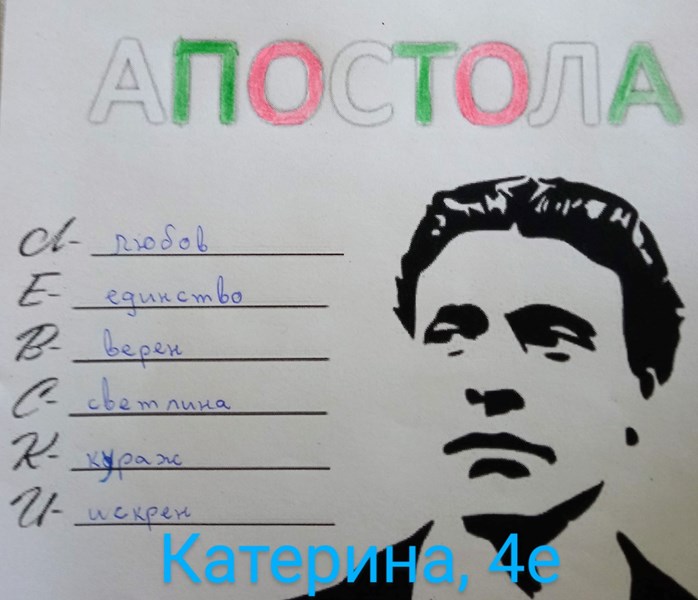 АПОСТОЛА
Л- любов
Е- единство
В- верен
С- светлина
К- кураж
И- искрен
Катерина, 4е